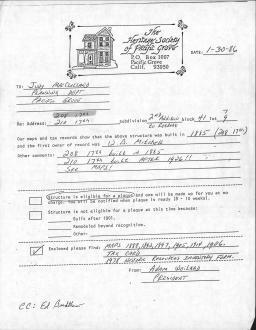 The
Heritage Society
of Pacific Grove
P.O. Box 1007
Pacific Grove
Calif. 93950
DATE: 1-30-86
TO: Judy MacClelland
Planning Dept
Pacific Grove
208 17th
Re: Address: 210 17th subdivision 2nd Addition block 41 lot 7
9
Our maps and tax records show that the above structure was built in 1885 (208 17th)
and the first owner of record was W. B. Mitchell
Other comments: 208 17th built in 1885
210 17th built after 1926!!
See maps!
Structure is eligible for a plaque and one will be made for you at no
charge. You will be notified when plaque is ready (8 - 10 weeks).
Structure is not eligible for a plaque at this time because:
Built after 1901.
Remodeled beyond recognition.
Other:
Enclosed please find: Maps 1888, 1892, 1897, 1905, 1914, 1926.
Tax card
1978 Historic Resources Inventory Form.
From: Adam Weiland
President
CC: Ed